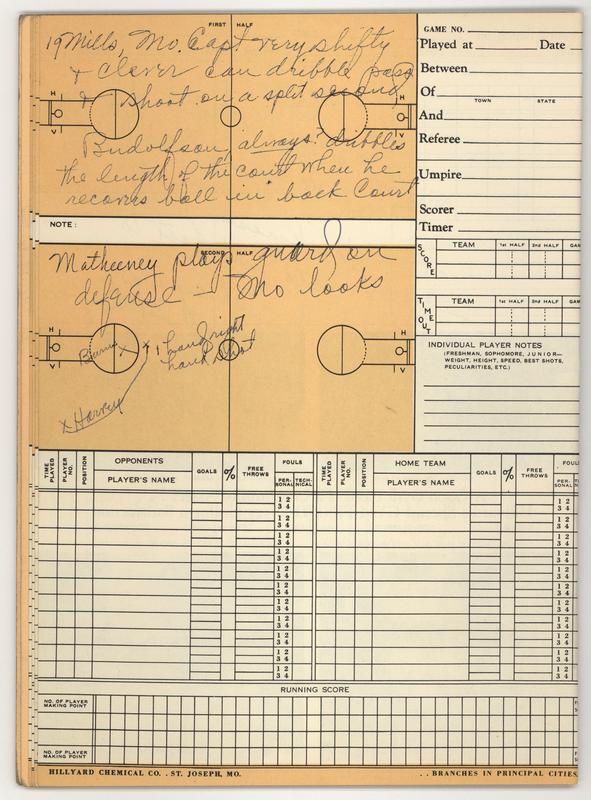 FIRST HALF
19 Mills, Mo. Capt very shifty
& clever can dribble pass
& shoot on a split second
Budolfson, always? dribbles
the length of the court when he
recovers ball in back court
NOTE:
SECOND HALF
Matheeney plays guard on
defense - Mo looks
H V
H V
H V
H V
Burns x x
right
hand shot
x Harvey
GAME NO.
Played at Date
Between
Of
TOWN STATE
And
Referee
Umpire
Scorer
Timer
SCORE TEAM 1st HALF 2nd HALF
TIME OUT TEAM 1st HALF 2nd HALF
INDIVIDUAL PLAYER NOTES
(FRESHMAN, SOPHOMORE, JUNIOR—
WEIGHT, HEIGHT, SPEED, BEST SHOTS,
PECULIARITIES, ETC.)
TIME PLAYED PLAYER NO. POSITION OPPONENTS PLAYER'S NAME GOALS % FREE THROWS FOULS PERSONAL TECHNICAL
TIME PLAYED PLAYER NO. POSITION HOME TEAM PLAYER'S NAME GOALS % FREE THROWS FOUL PERSONAL
1 2 1 2
3 4 3 4
1 2 1 2
3 4 3 4
1 2 1 2
3 4 3 4
1 2 1 2
3 4 3 4
1 2 1 2
3 4 3 4
1 2 1 2
3 4 3 4
1 2 1 2
3 4 3 4
1 2 1 2
3 4 3 4
1 2 1 2
3 4 3 4
1 2 1 2
3 4 3 4
1 2 1 2
3 4 3 4
RUNNING SCORE
NO. OF PLAYER
MAKING POINT
NO. OF PLAYER
MAKING POINT
HILLYARD CHEMICAL CO. . ST. JOSEPH, MO. . . BRANCHES IN PRINCIPAL CITIES